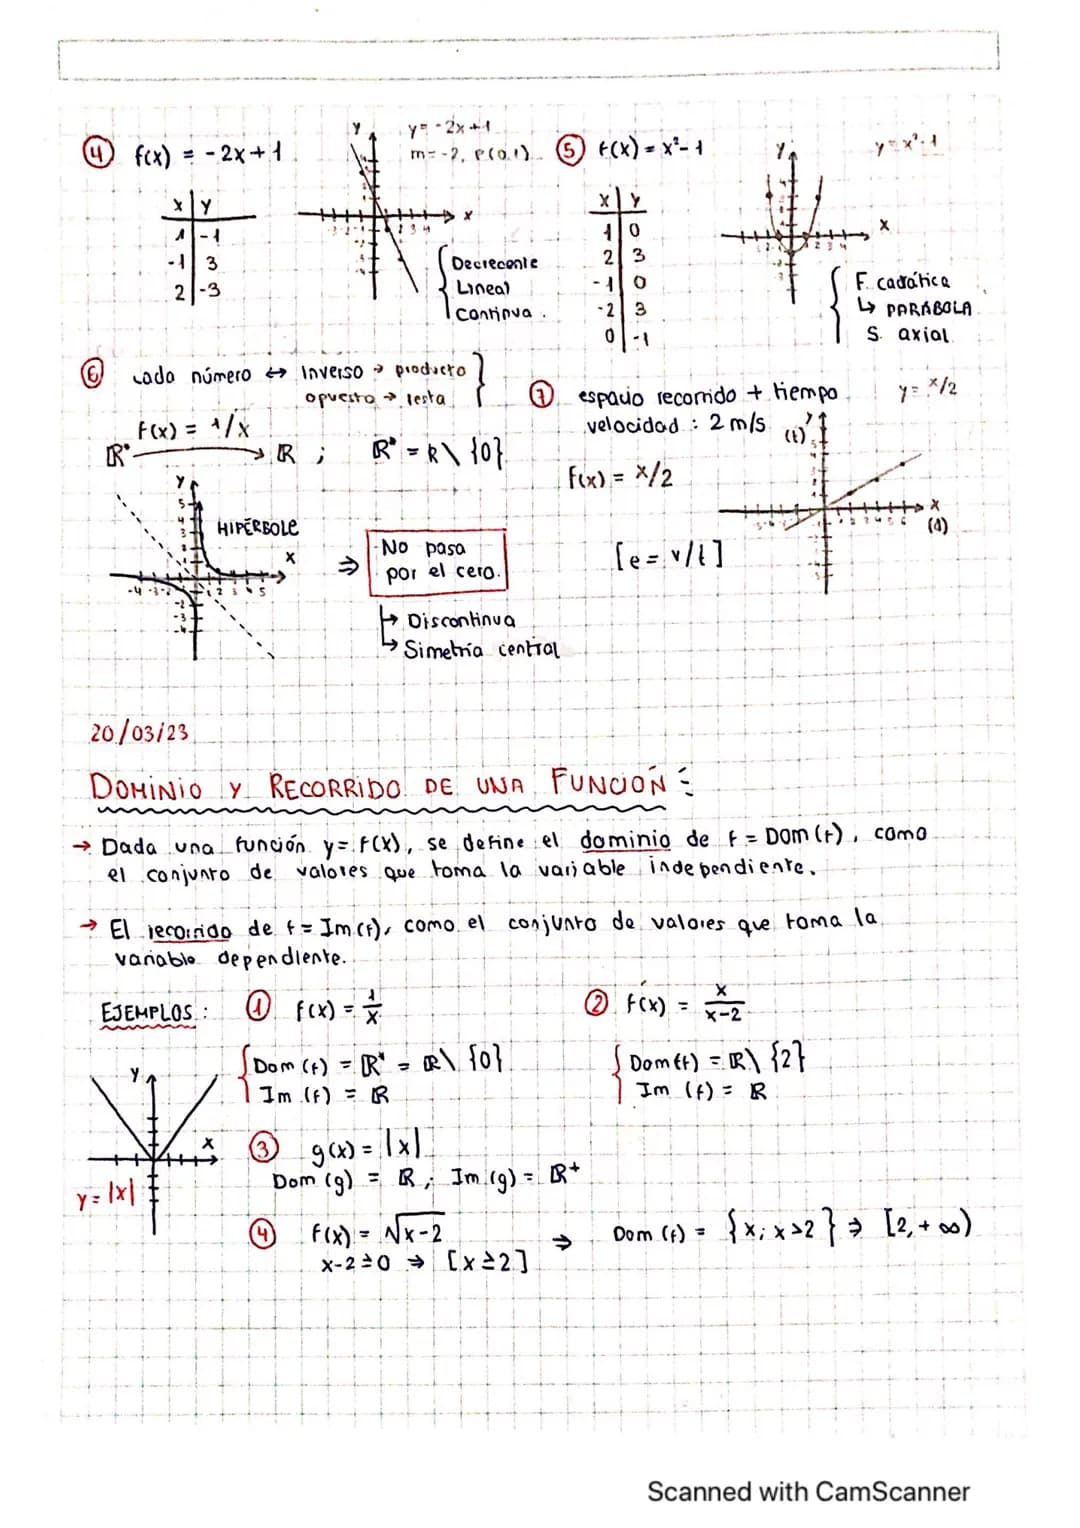 ④ f(x) = -2x+1
y = -2x+1
m = -2, P(0,1)
x | y
1 | -1
-1 | 3
2 | -3
y
x
Decreciente
Lineal
Continua.
⑤ f(x) = x²-1
y = x²-1
x | y
1 | 0
2 | 3
-1 | 0
-2 | 3
0 | -1
y
x
F. cadrática
↳ PARÁBOLA
S. axial
⑥ cada número ↔ Inverso → producto
opuesto → resta
f(x) = 1/x
ℝ* → ℝ ; ℝ* = ℝ \ {0}
y
HIPÉRBOLE
x
⇒ No pasa
por el cero.
↳ Discontinua
↳ Simetría central
⑦ espacio recorrido + tiempo
velocidad : 2 m/s
y = x/2
f(x) = x/2
[e = v/t]
y
(t)
x
20/03/23
DOMINIO Y RECORRIDO DE UNA FUNCIÓN :
→ Dada una función y = f(x), se define el dominio de f = Dom(f), como
el conjunto de valores que toma la variable independiente.
→ El recorrido de f = Im(f), como el conjunto de valores que toma la
variable dependiente.
EJEMPLOS : ① f(x) = 1/x
② f(x) = x/x-2
Dom (f) = ℝ* = ℝ \ {0}
Im (f) = ℝ
Dom(f) = ℝ \ {2}
Im (f) = ℝ
y
x
y = |x|
③ g(x) = |x|
Dom (g) = ℝ ; Im (g) = ℝ+
④ f(x) = √x-2 ⇒ Dom (f) = {x; x>2} ⇒ [2,+∞)
x-2≥0 ⇒ [x≥2]
Scanned with CamScanner